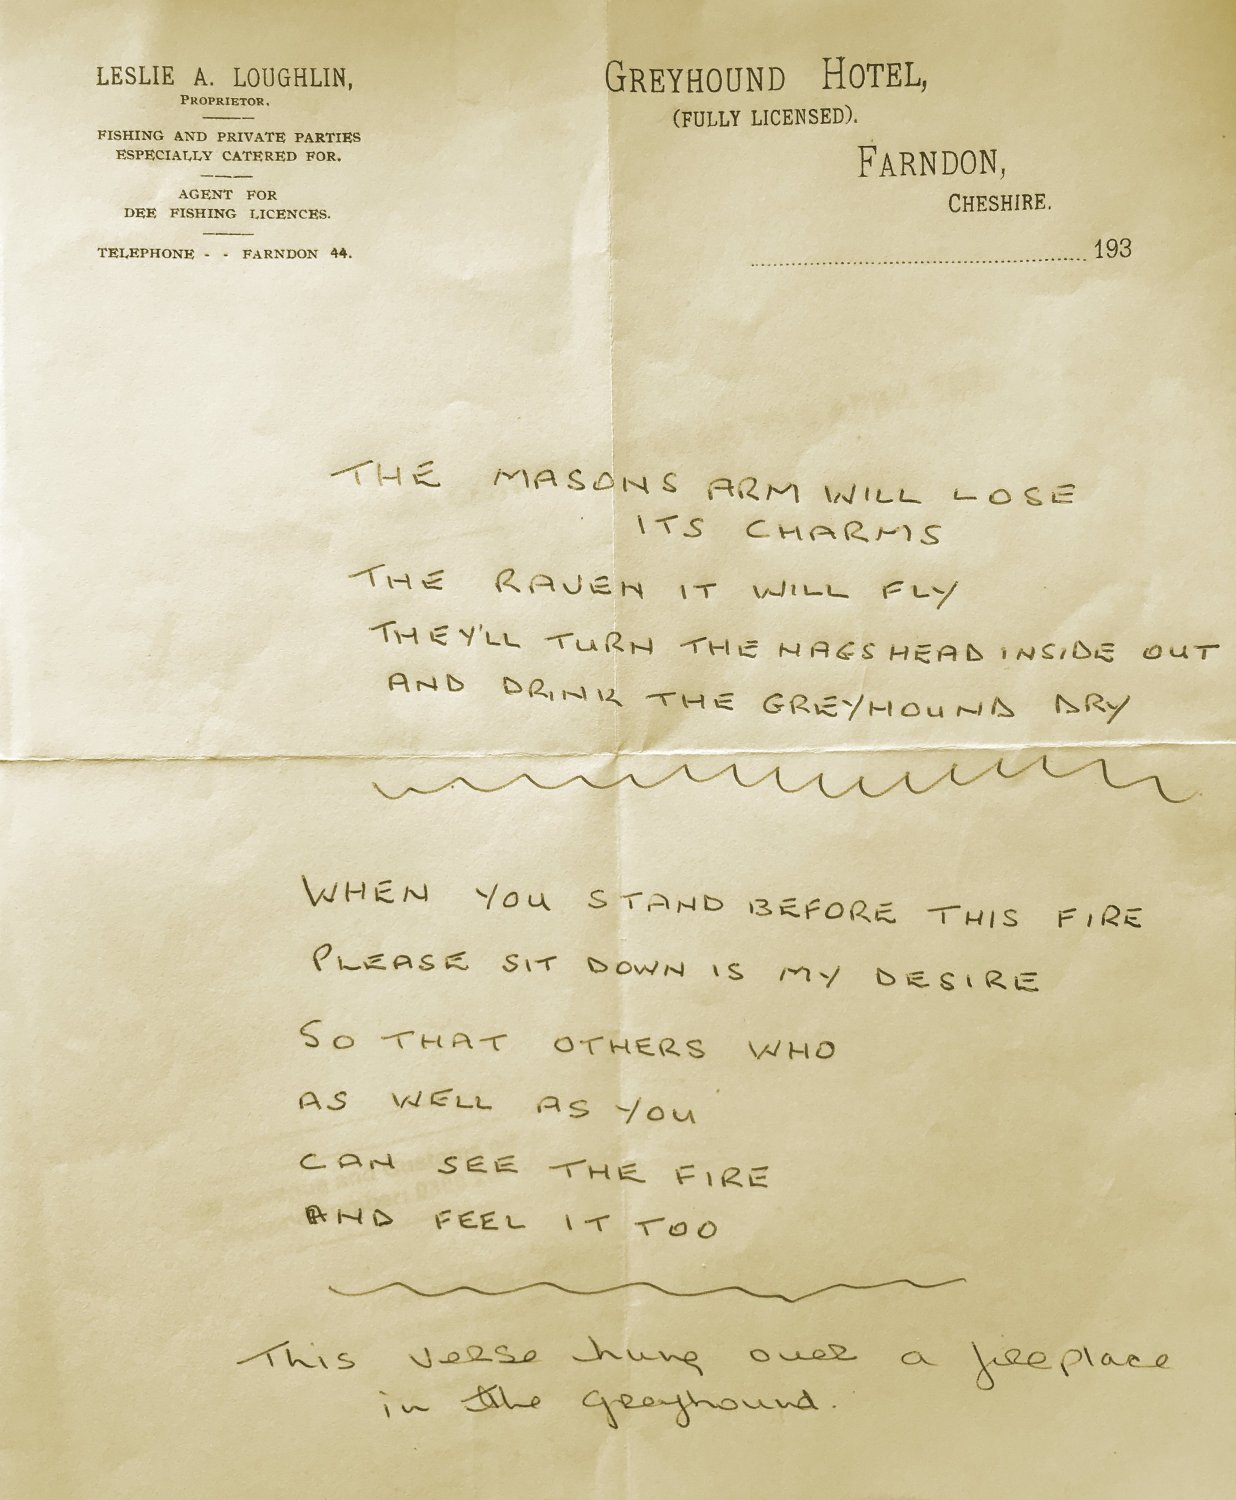 LESLIE A. LOUGHLIN,
PROPRIETOR.
FISHING AND PRIVATE PARTIES
ESPECIALLY CATERED FOR.
AGENT FOR
DEE FISHING LICENCES.
TELEPHONE - - FARNDON 44.
GREYHOUND HOTEL,
(FULLY LICENSED).
FARNDON,
CHESHIRE.
193
THE MASONS ARM WILL LOSE
ITS CHARMS
THE RAVEN IT WILL FLY
THEY'LL TURN THE NAGSHEAD INSIDE OUT
AND DRINK THE GREYHOUND DRY
WHEN YOU STAND BEFORE THIS FIRE
PLEASE SIT DOWN IS MY DESIRE
SO THAT OTHERS WHO
AS WELL AS YOU
CAN SEE THE FIRE
AND FEEL IT TOO
This verse hung over a fireplace
in the Greyhound.